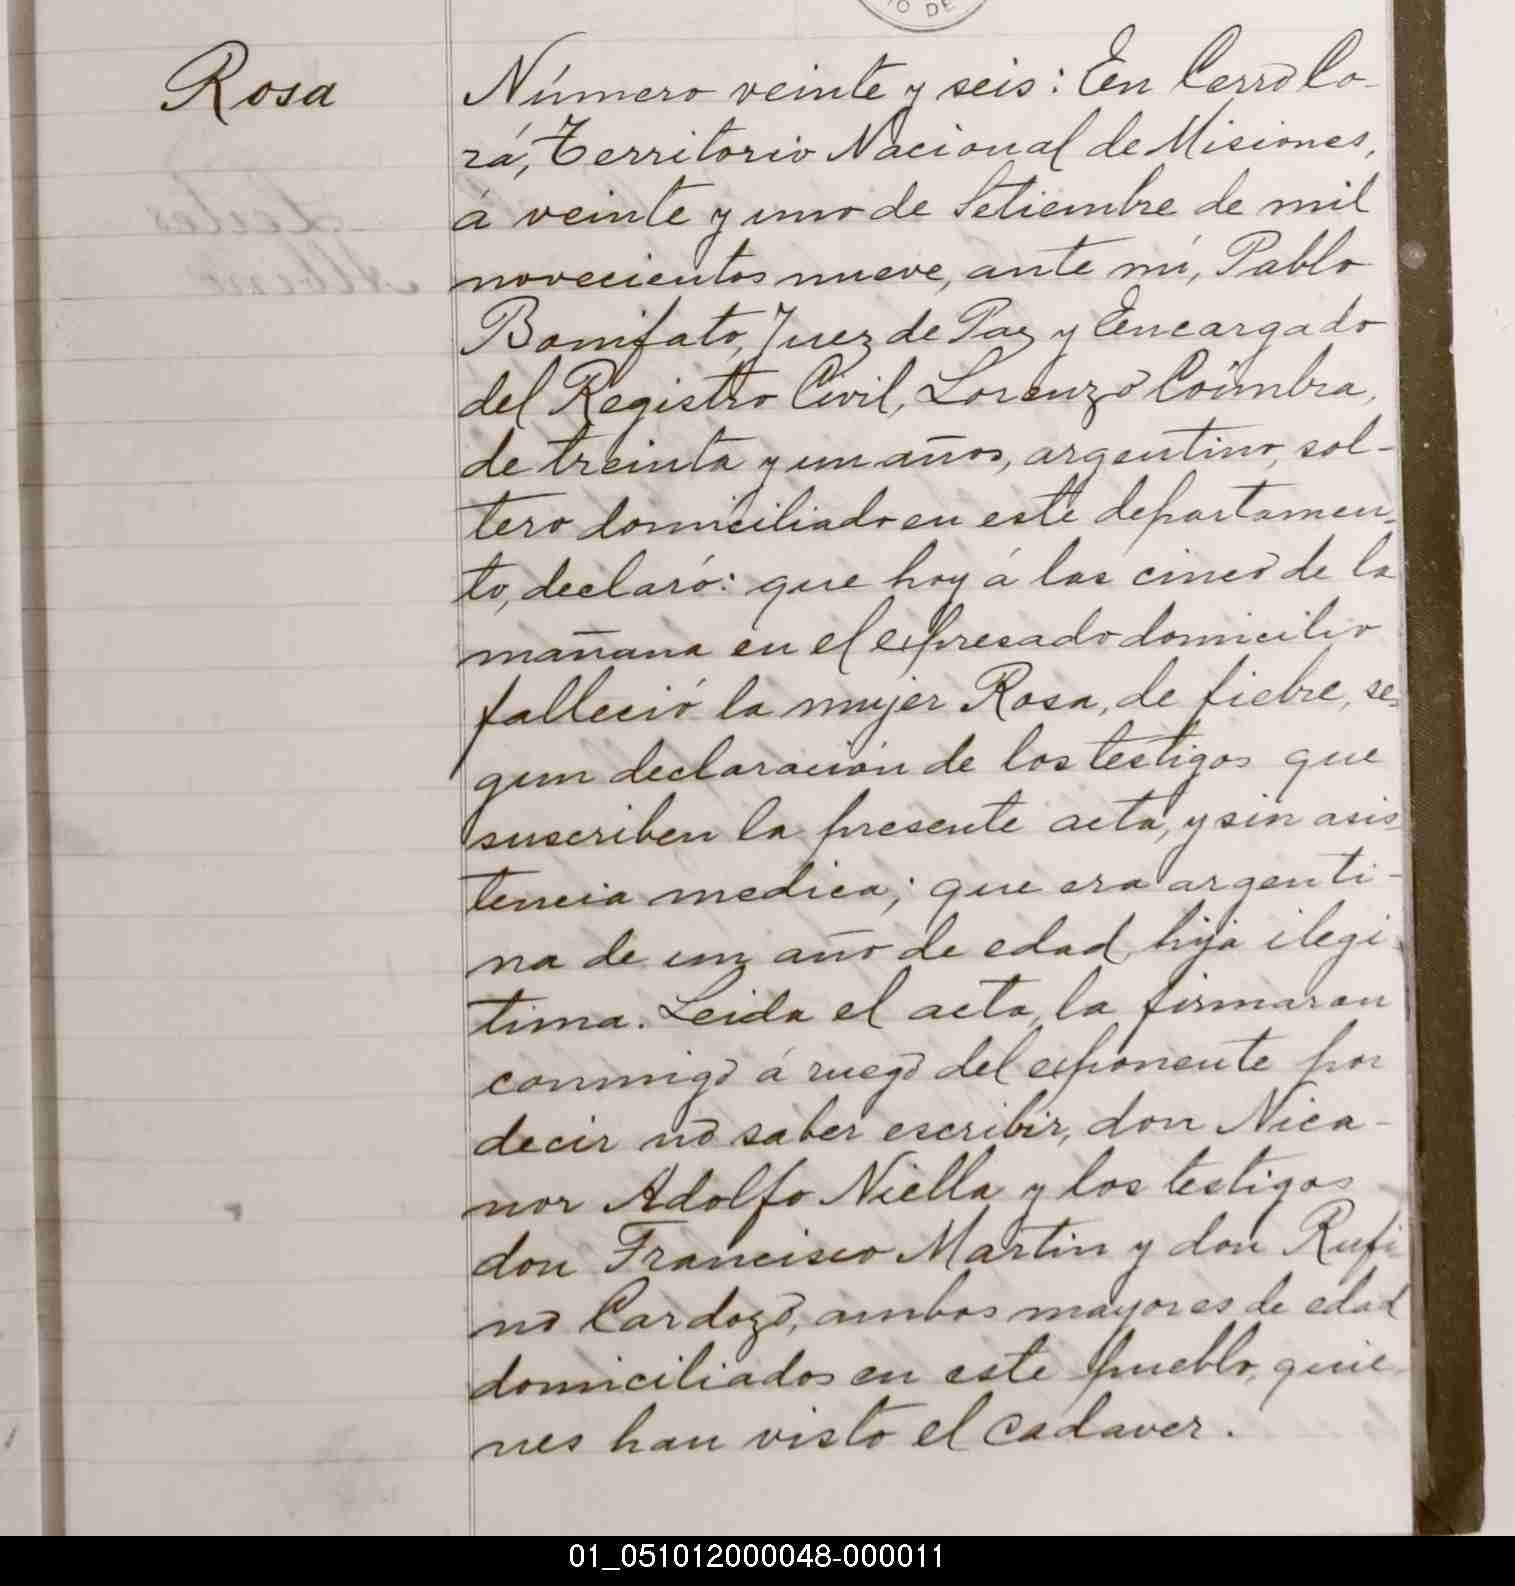 IO DE
Rosa
Número veinte y seis: En Cerro Co-
rá, Territorio Nacional de Misiones,
á veinte y uno de Setiembre de mil
novecientos nueve, ante mi, Pablo
Bonifato, Juez de Paz y Encargado
del Registro Civil, Lorenzo Coimbra,
de treinta y un años, argentino, sol-
tero domiciliado en este departamen-
to, declaró: que hoy á las cinco de la
mañana en el expresado domicilio
falleció la mujer Rosa, de fiebre, se-
gun declaración de los testigos que
suscriben la presente acta, y sin asis
tencia medica; que era argenti-
na de un año de edad, hija ilegi-
tima. Leida el acta, la firmaran
conmigo á ruego del exponente por
decir no saber escribir, don Nica-
nor Adolfo Niella y los testigos
don Francisco Martin y don Rufi
no Cardozo, ambos mayores de edad
domiciliados en este pueblo, quie
nes han visto el cadaver.
01_051012000048-000011